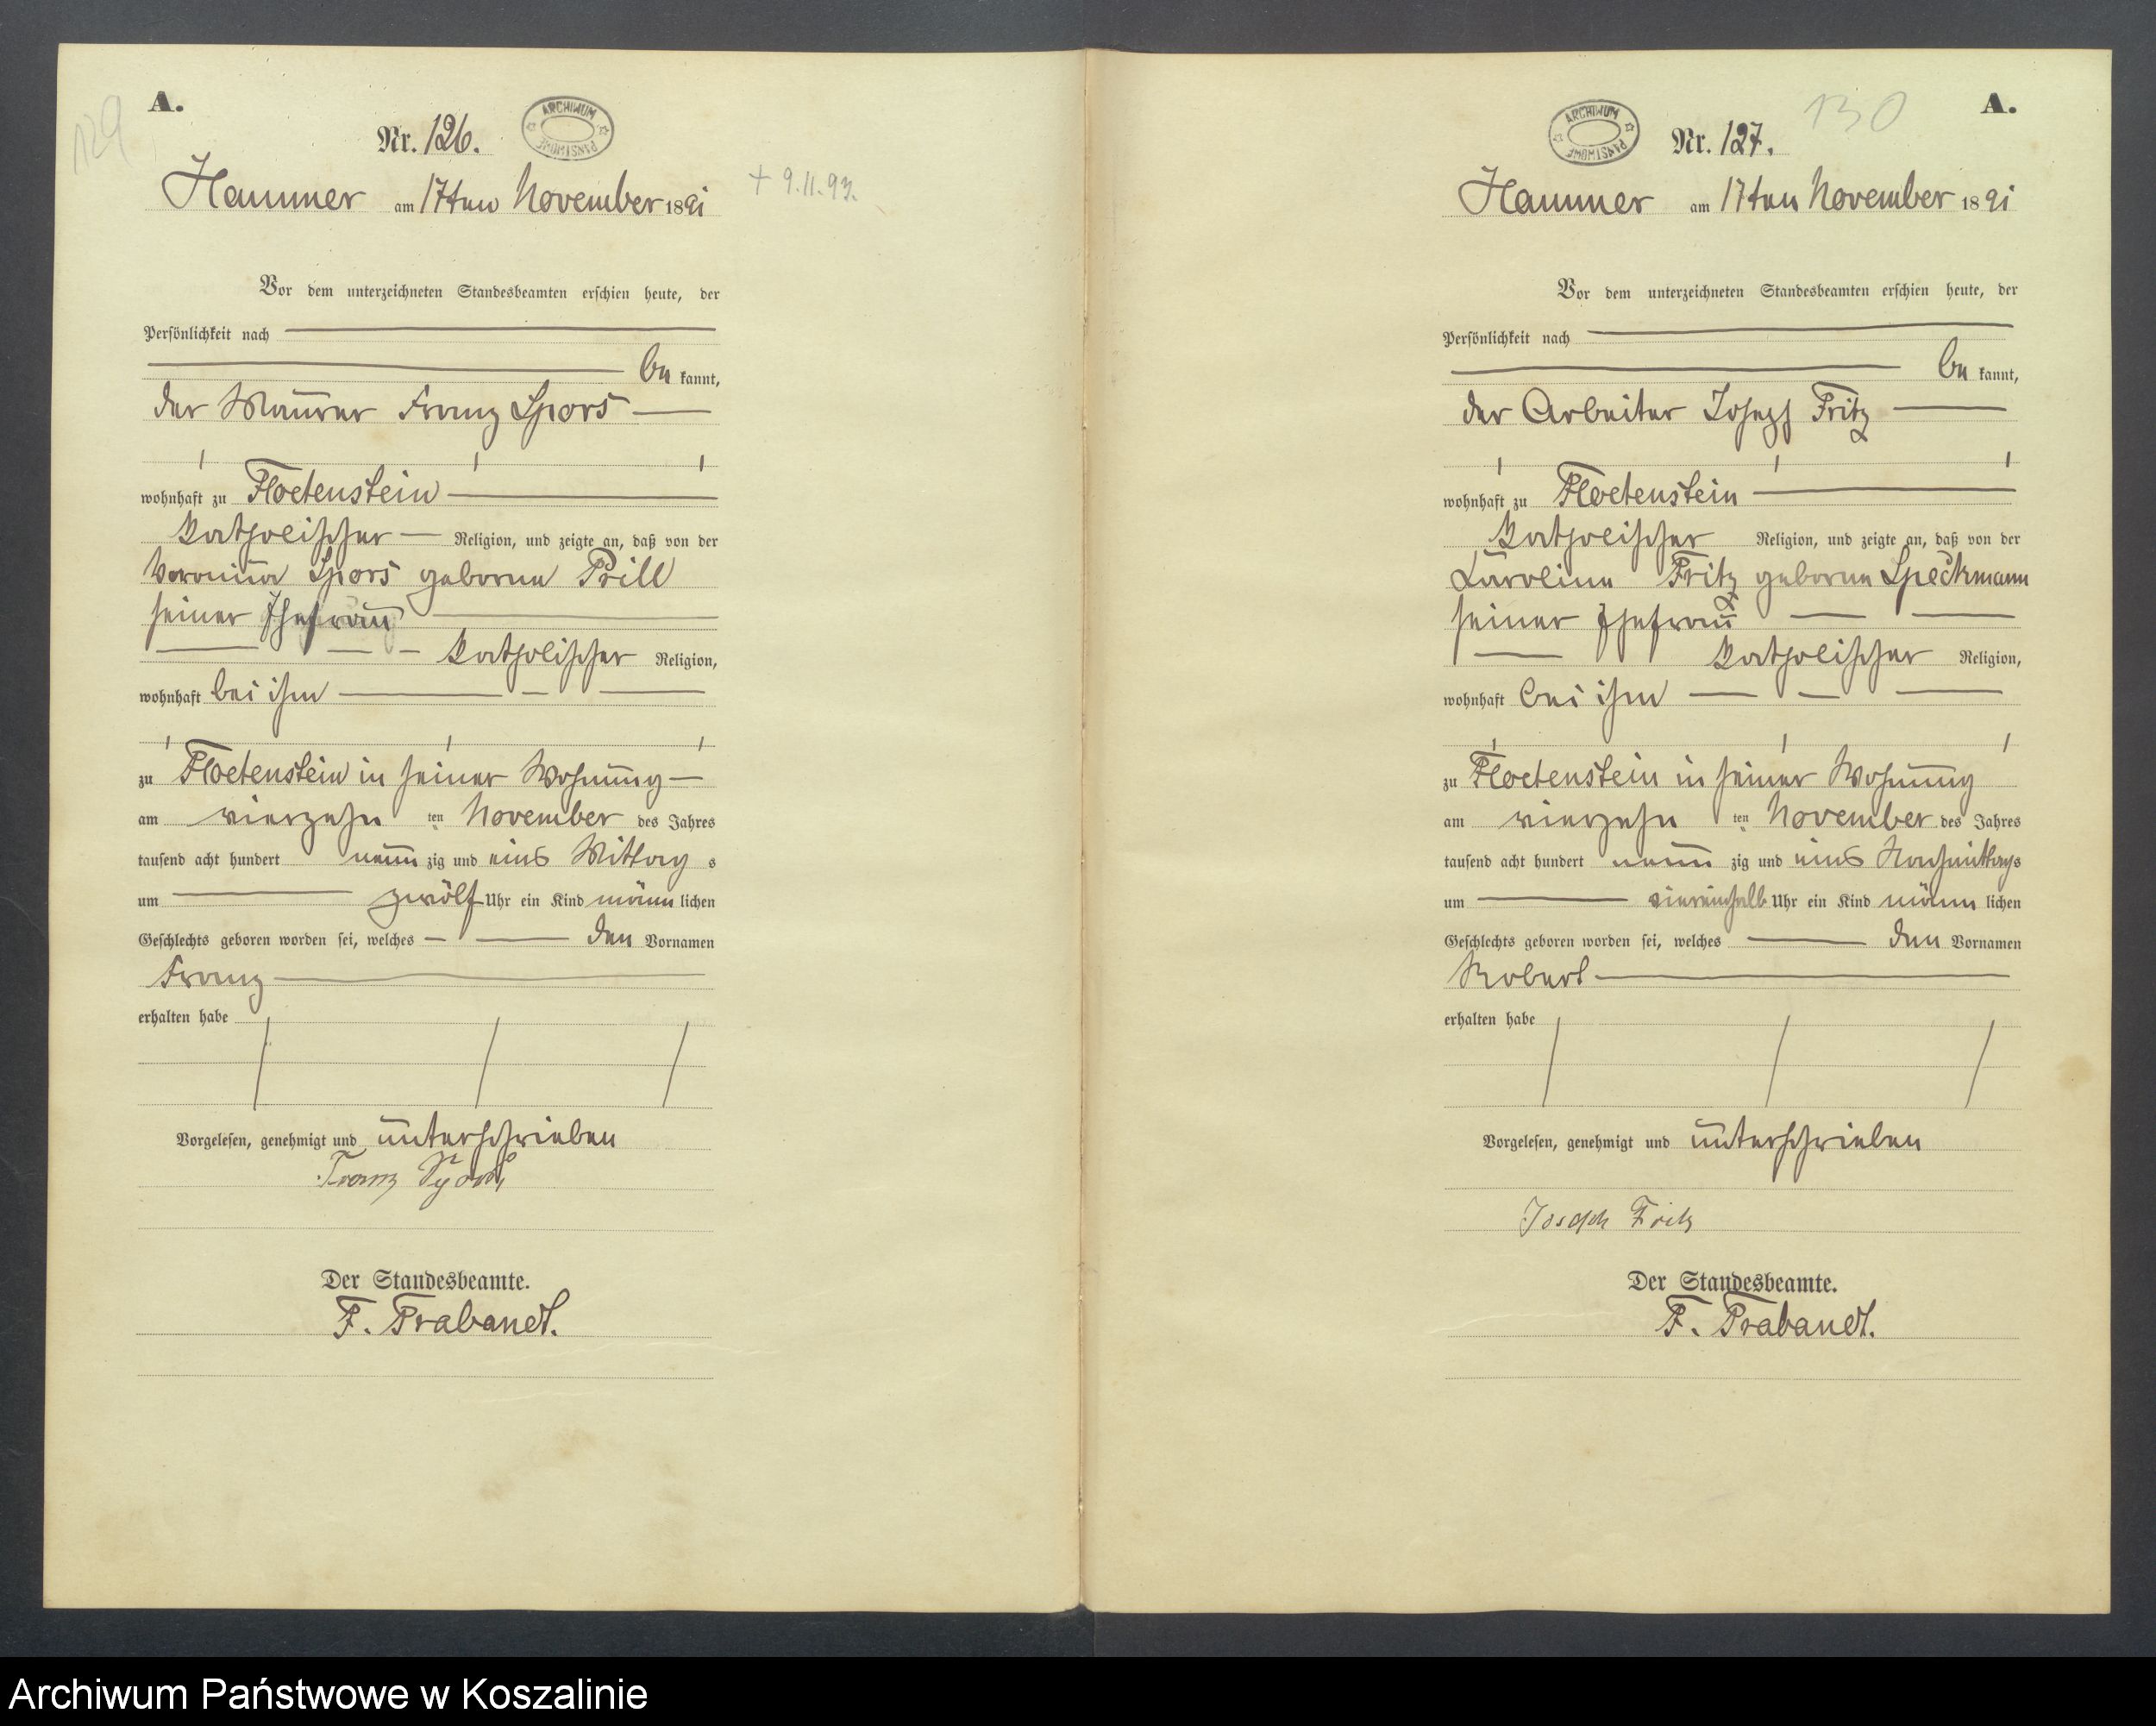 129
A.
Nr. 126.
ARCHIWUM PAŃSTWOWE
Hammer am 17ten November 1891
+ 9.11.93.
Vor dem unterzeichneten Standesbeamten erschien heute, der
Persönlichkeit nach
be kannt,
der Maurer Franz Spors
wohnhaft zu Floetenstein
katholischer Religion, und zeigte an, daß von der
Veronika Spors geborne Prill
seiner Ehefrau
katholischer Religion,
wohnhaft bei ihm
zu Floetenstein in seiner Wohnung
am vierzehn ten November des Jahres
tausend acht hundert neun zig und eins Mittag s
um zwölf Uhr ein Kind männ lichen
Geschlechts geboren worden sei, welches den Vornamen
Franz
erhalten habe
Vorgelesen, genehmigt und unterschrieben
Franz Spors
Der Standesbeamte.
F. Prabandt.
130
A.
ARCHIWUM PAŃSTWOWE
Nr. 127.
Hammer am 17ten November 1891
Vor dem unterzeichneten Standesbeamten erschien heute, der
Persönlichkeit nach
be kannt,
der Arbeiter Joseph Fritz
wohnhaft zu Floetenstein
katholischer Religion, und zeigte an, daß von der
Karoline Fritz geborne Speckmann
seiner Ehefrau
katholischer Religion,
wohnhaft bei ihm
zu Floetenstein in seiner Wohnung
am vierzehn ten November des Jahres
tausend acht hundert neun zig und eins Nachmittags
um viereinhalb Uhr ein Kind männ lichen
Geschlechts geboren worden sei, welches den Vornamen
Robert
erhalten habe
Vorgelesen, genehmigt und unterschrieben
Joseph Fritz
Der Standesbeamte.
F. Prabandt.
Archiwum Państwowe w Koszalinie